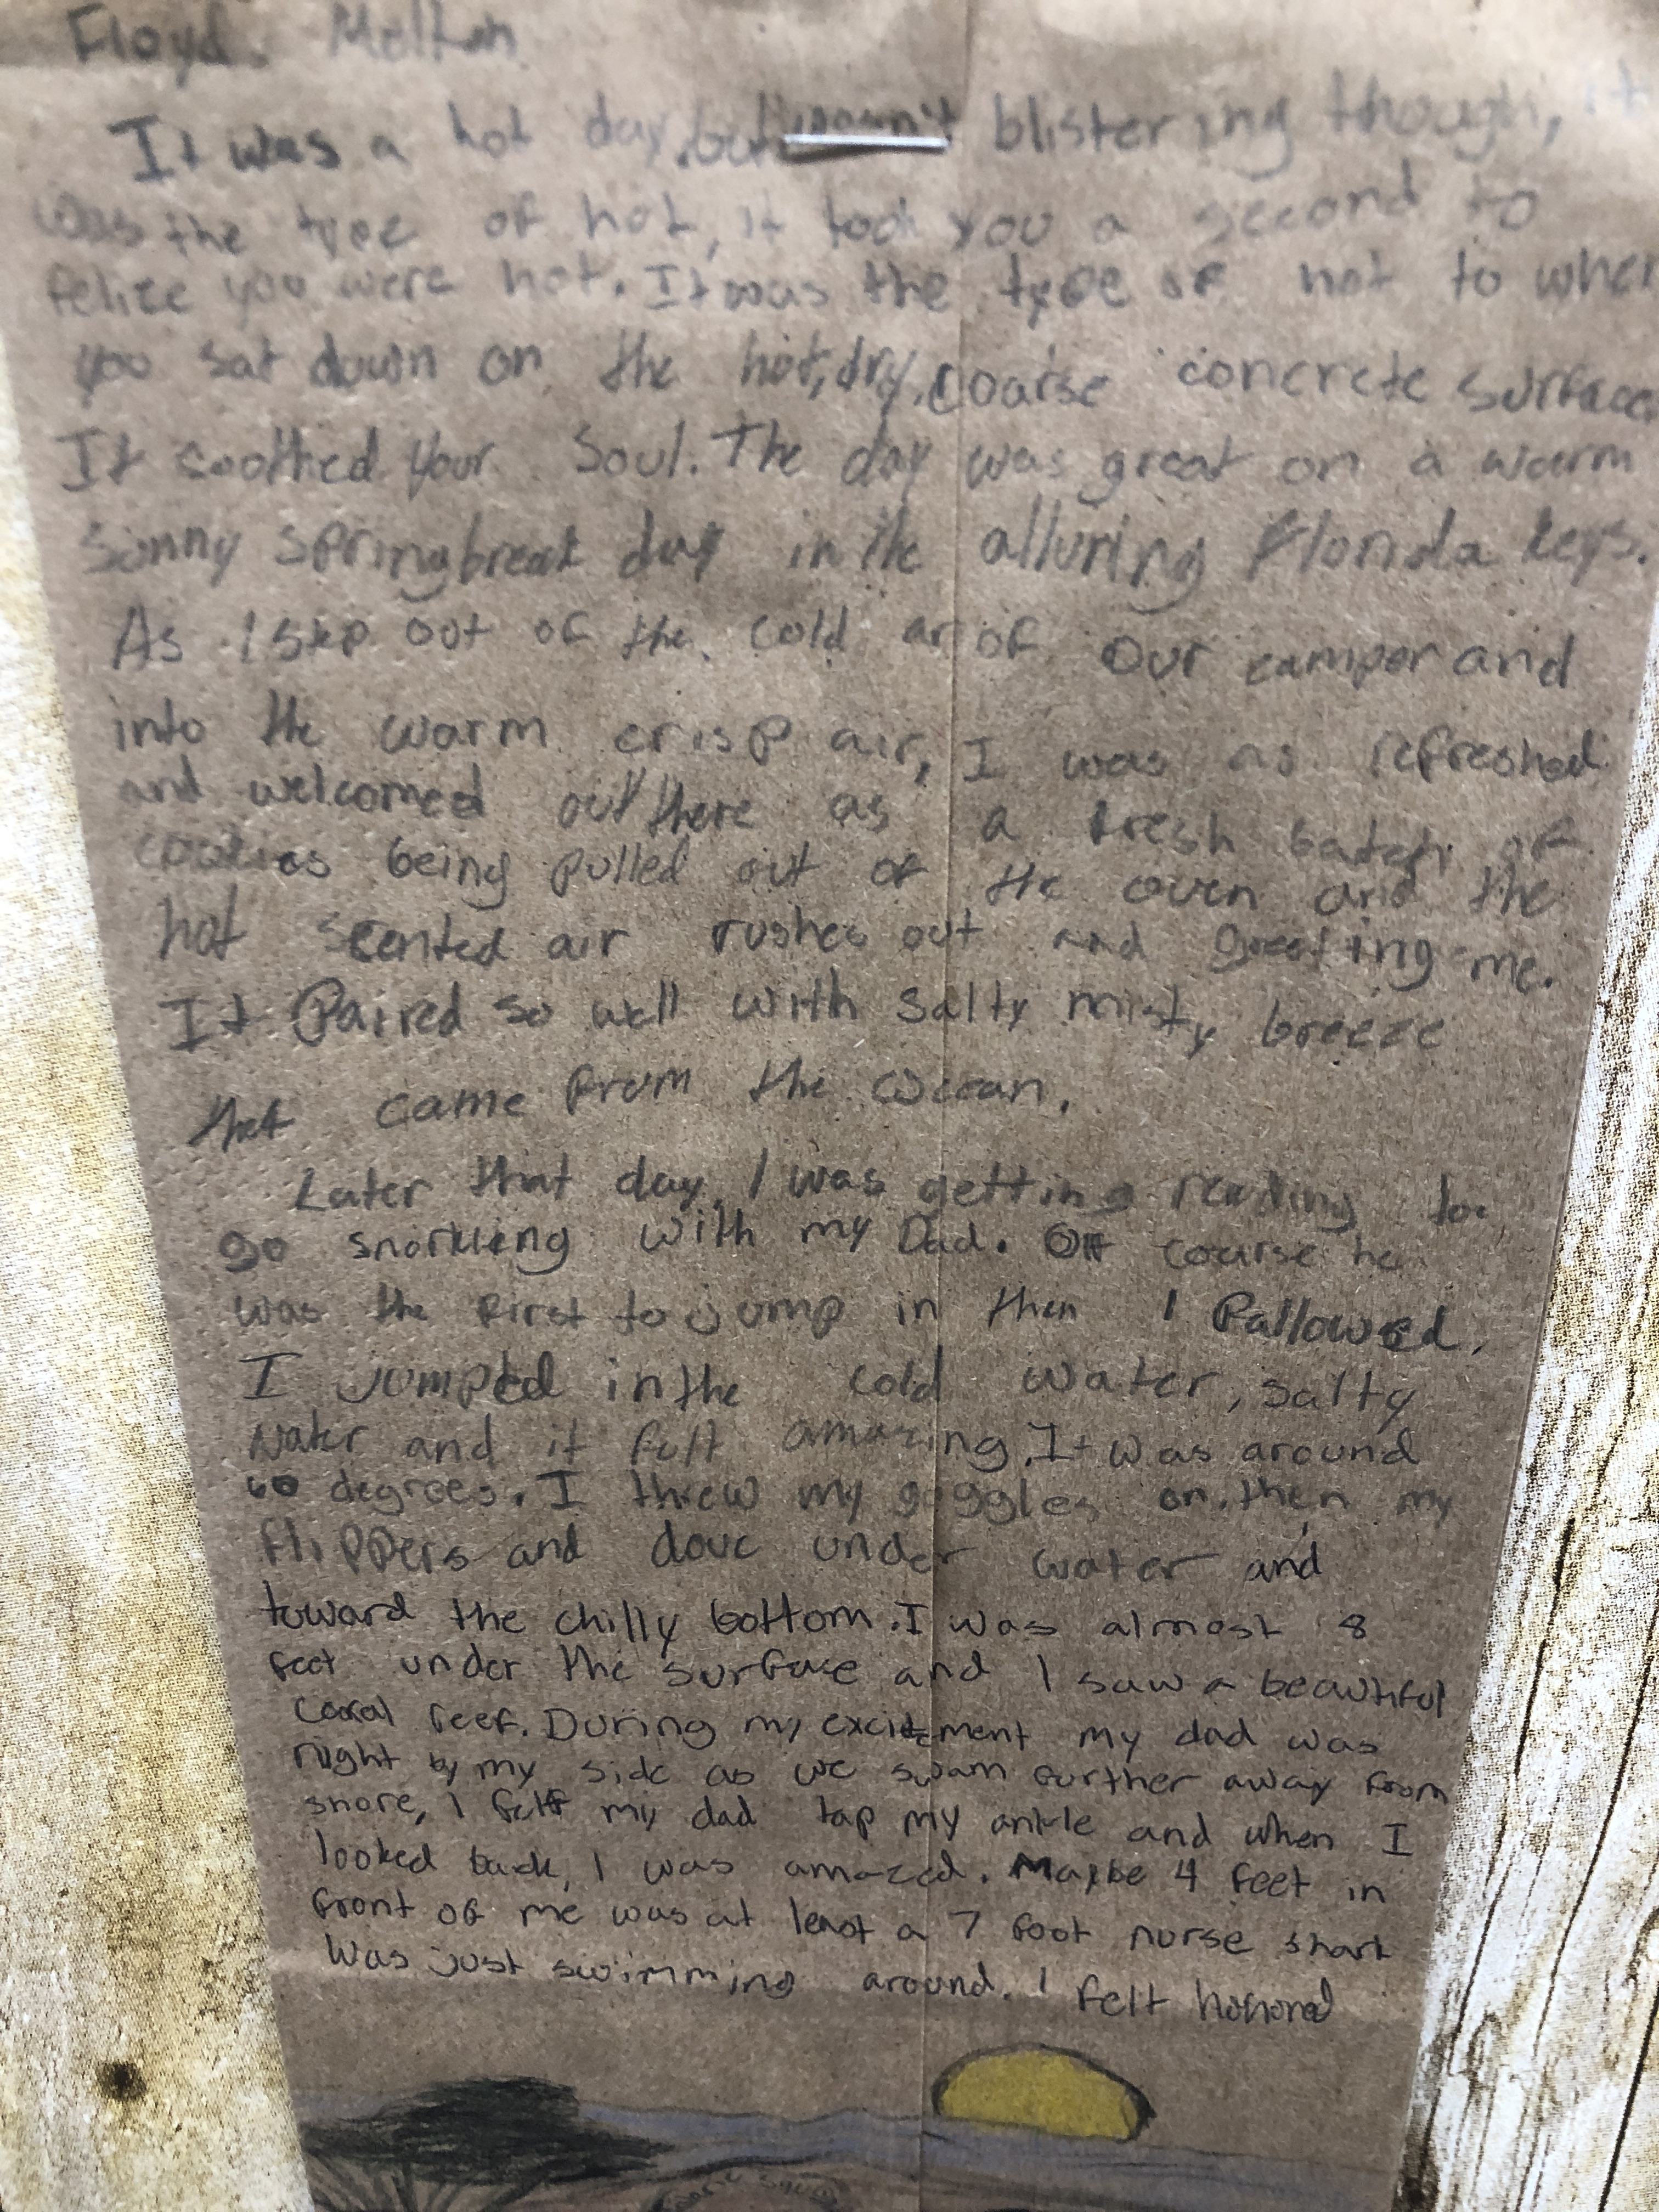 Floyd. Melton
It was a hot day, but wasn't blistering though, it
was the type of hot, it took you a second to
relize you were hot. It was the type of hot to when
you sat down on the hot, dry, coarse concrete surface
It soothed your Soul. The day was great on a warm
Sunny Springbreak day in the alluring Florida keys.
As I step out of the cold ar of our camper and
into the warm crisp air, I was as refreshed
and welcomed out there as a fresh batch of
cookies being pulled out of the oven and the
hot scented air rushes out and greeting me.
It Paired so well with salty misty breeze
that came from the Ocean.
Later that day, I was getting reading to
go snorkling with my Dad. Off course he
was the first to jump in then I fallowed.
I jumpted in the cold water, salty
water and it felt amazing. It was around
60 degrees. I threw my goggles on, then my
flippers and dove under water and
toward the chilly bottom. I was almost 8
feet under the surface and I saw a beautiful
Coral reef. During my excitement my dad was
right by my side as we swam further away from
shore, I felt my dad tap my ankle and when I
looked back, I was amazed. Maybe 4 feet in
front of me was at least a 7 foot nurse shark
Was just swimming around. I felt honored